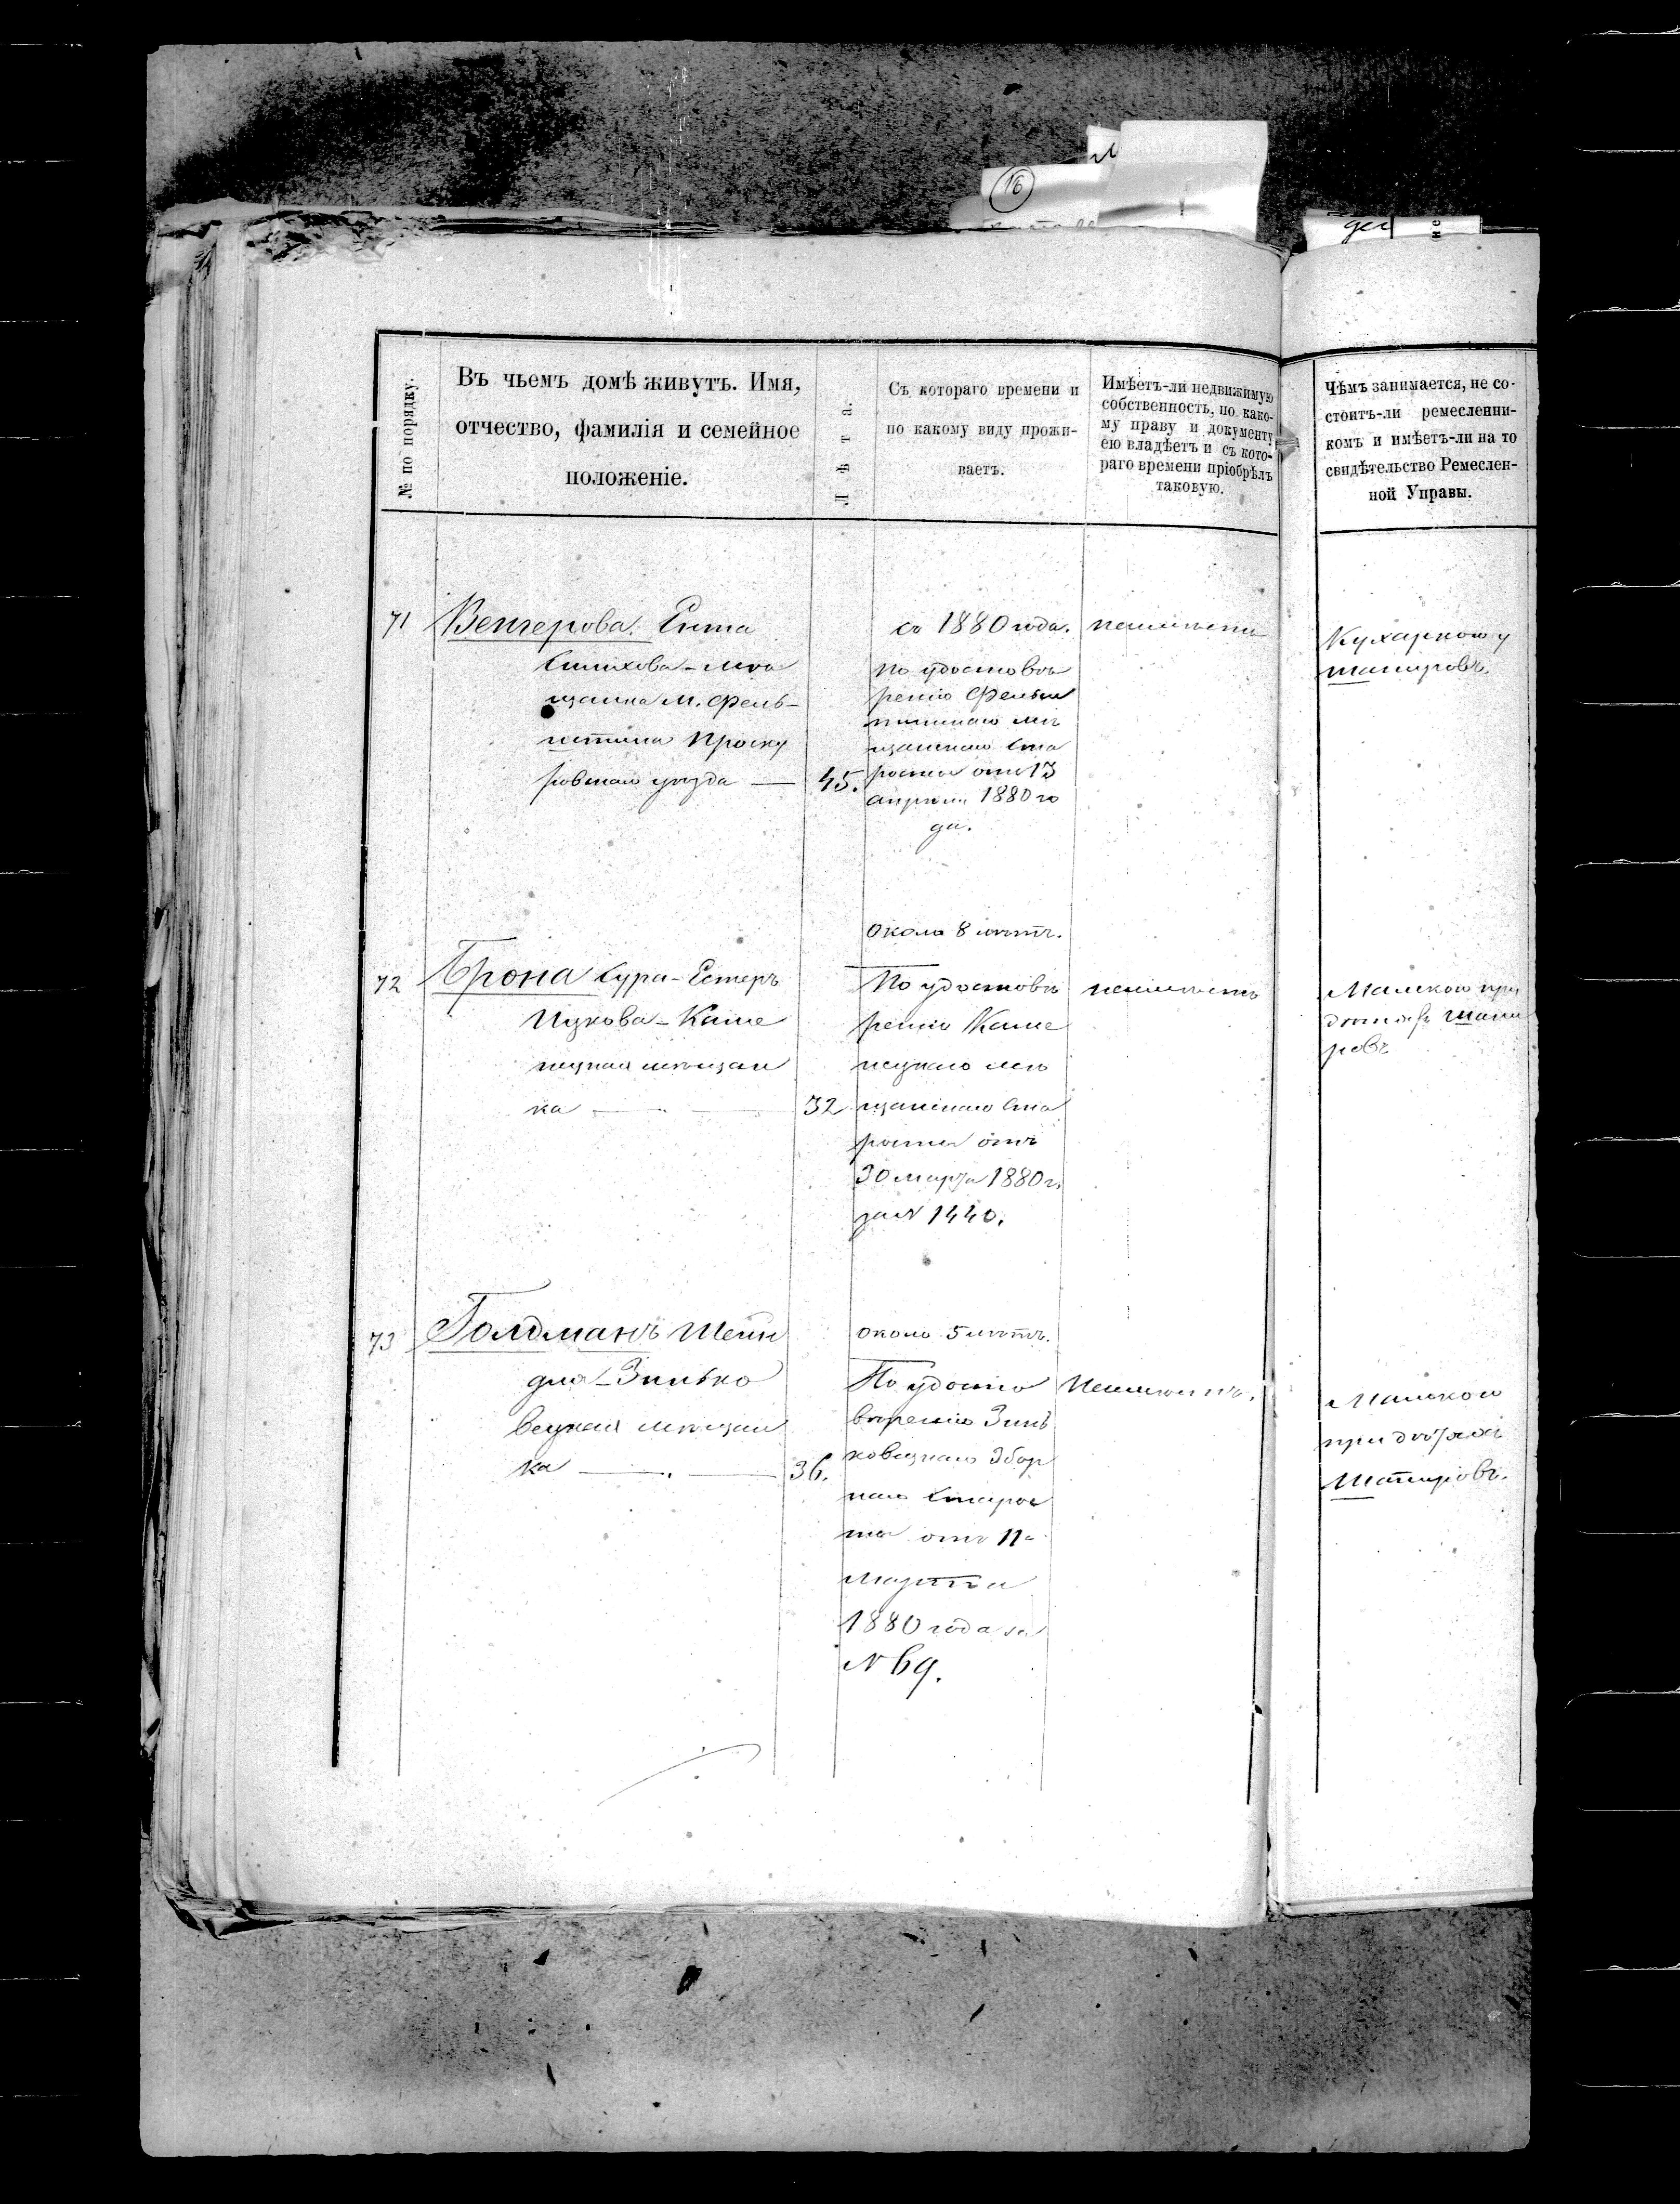 16
дел
№ по порядку.
Въ чьемъ домѣ живутъ. Имя,
отчество, фамилія и семейное
положеніе.
Лѣта.
Съ котораго времени и
по какому виду прожи-
ваетъ.
Имѣетъ-ли недвижимую
собственность, по како-
му праву и документу
ею владѣетъ и съ кото-
раго времени пріобрѣлъ
таковую.
Чѣмъ занимается, не со-
стоитъ-ли ремесленни-
комъ и имѣетъ-ли на то
свидѣтельство Ремеслен-
ной Управы.
71
Венгерова Ента
мѣ
щанка м. Фель-
штина Проску
ровскаго уѣзда — 45.
съ 1880 года.
по удостовѣ
ренію Фельш
тинскаго мѣ
щанскаго Ста
росты отъ 13
апрѣля 1880 го
да.
неимѣетъ
Кухаркою у
Шапировъ.
72
Брона Сура-Естеръ
Ицкова - Каме
нецкая мѣщан
ка — 32
около 8 лѣтъ.
По удостовѣ
ренію Каме
нецкаго мѣ
щанскаго Ста
росты отъ
30 марта 1880 г.
за № 1440.
неимѣетъ
Мамкою при
дѣтяхъ Шапи
ровъ
73
Голдманъ Шейн
для - Зинько
вецкая мѣщан
ка — 36.
около 5 лѣтъ.
По удосто
вѣренію Зинь
ковецкаго Збор
наго Старос
ты отъ 11
Марта
1880 года за
№ 69.
Неимѣетъ.
Мамкою
при дѣтяхъ
Шапировъ.